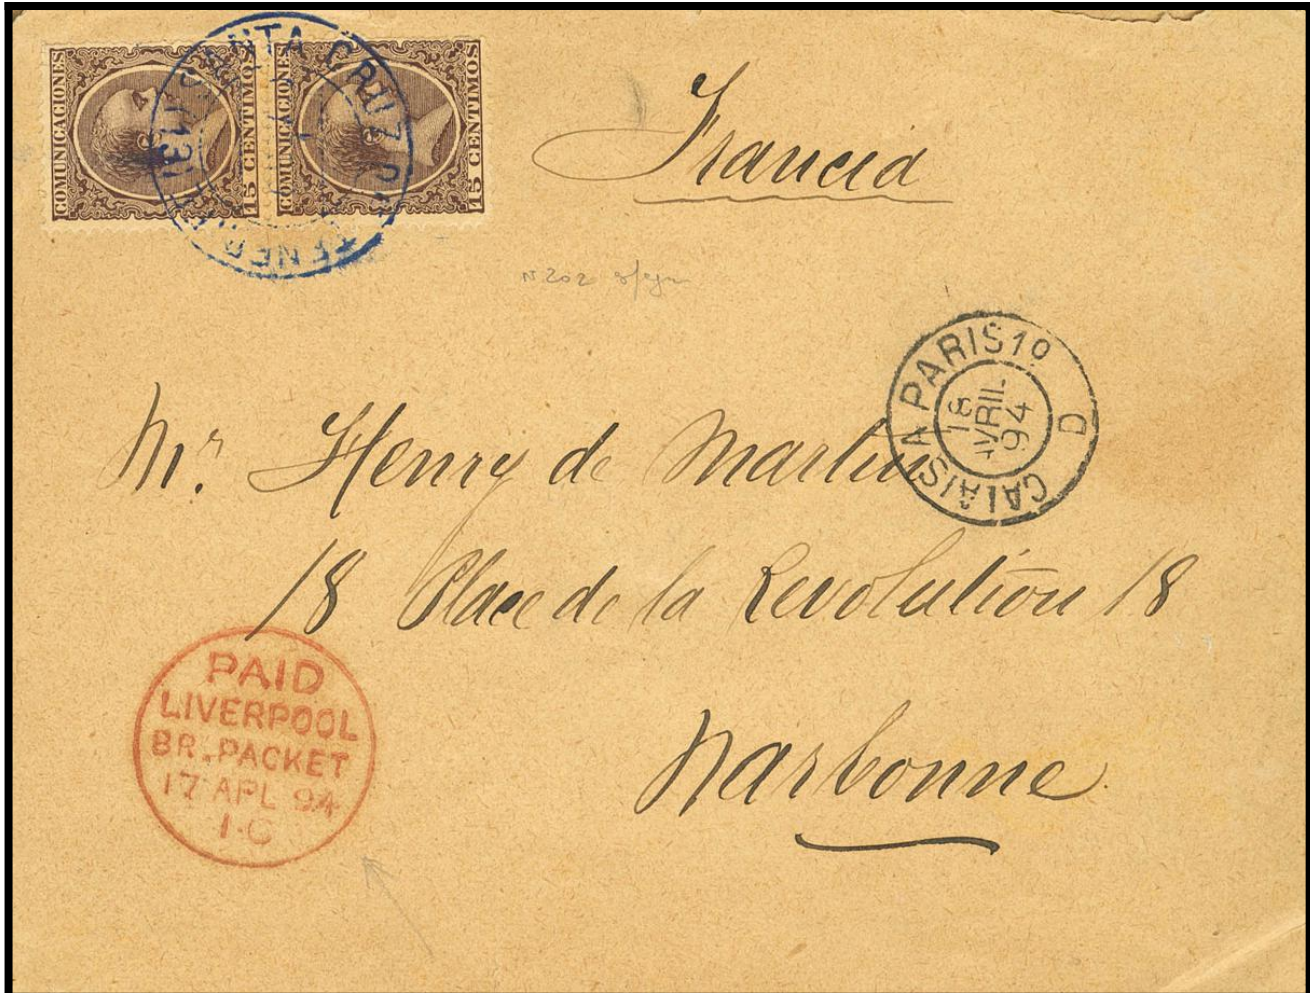 COMUNICACIONES
15 CENTIMOS
COMUNICACIONES
15 CENTIMOS
SANTA CRUZ D. TENERIFE
Francia
N. 202
CALAIS A PARIS 1º
18
AVRIL
94
D
Mr. Henry de Martin
18 Place de la Revolution 18
Narbonne
PAID
LIVERPOOL
BR. PACKET
17 APL 94
1-C